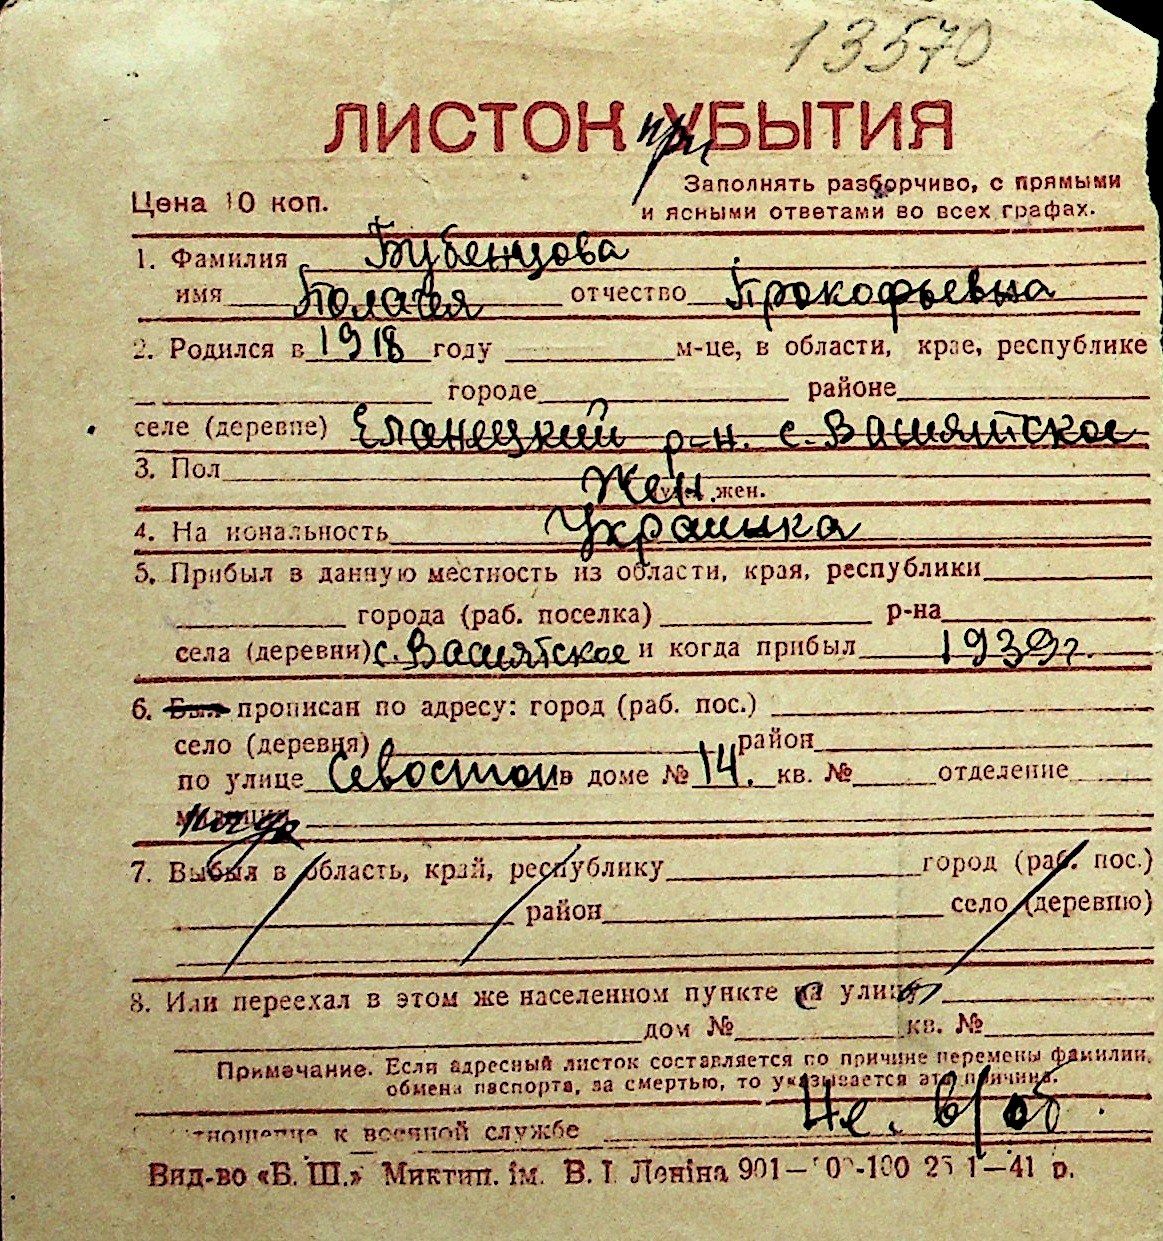 13570
ЛИСТОК при УБЫТИЯ
Заполнять разборчиво, с прямыми
Цена 10 коп. и ясными ответами во всех графах.
1. Фамилия Бубенцова
имя Полагея отчество Прокофьевна
2. Родился в 1918 году м-це, в области, крае, республике
городе районе
селе (деревне) Еланецкий р-н. с. Васиятское
3. Пол Жен. жен.
4. Национальность Украинка
5. Прибыл в данную местность из области, края, республики
города (раб. поселка) р-на
села (деревни) с. Васиятское и когда прибыл 1939г.
6. Был прописан по адресу: город (раб. пос.)
село (деревня) район
по улице Севостоп в доме № 14. кв. № отделение
милиции
7. Выбыл в область, край, республику город (раб. пос.)
район село (деревню)
8. Или переехал в этом же населенном пункте с улицы
дом № кв. №
Примечание. Если адресный листок составляется по причине перемены фамилии,
обмена паспорта, за смертью, то указывается эта причина.
отношение к военной службе Не. в/об.
Вид-во «Б. Ш.» Миктип. ім. В. І. Леніна 901— 41 р.